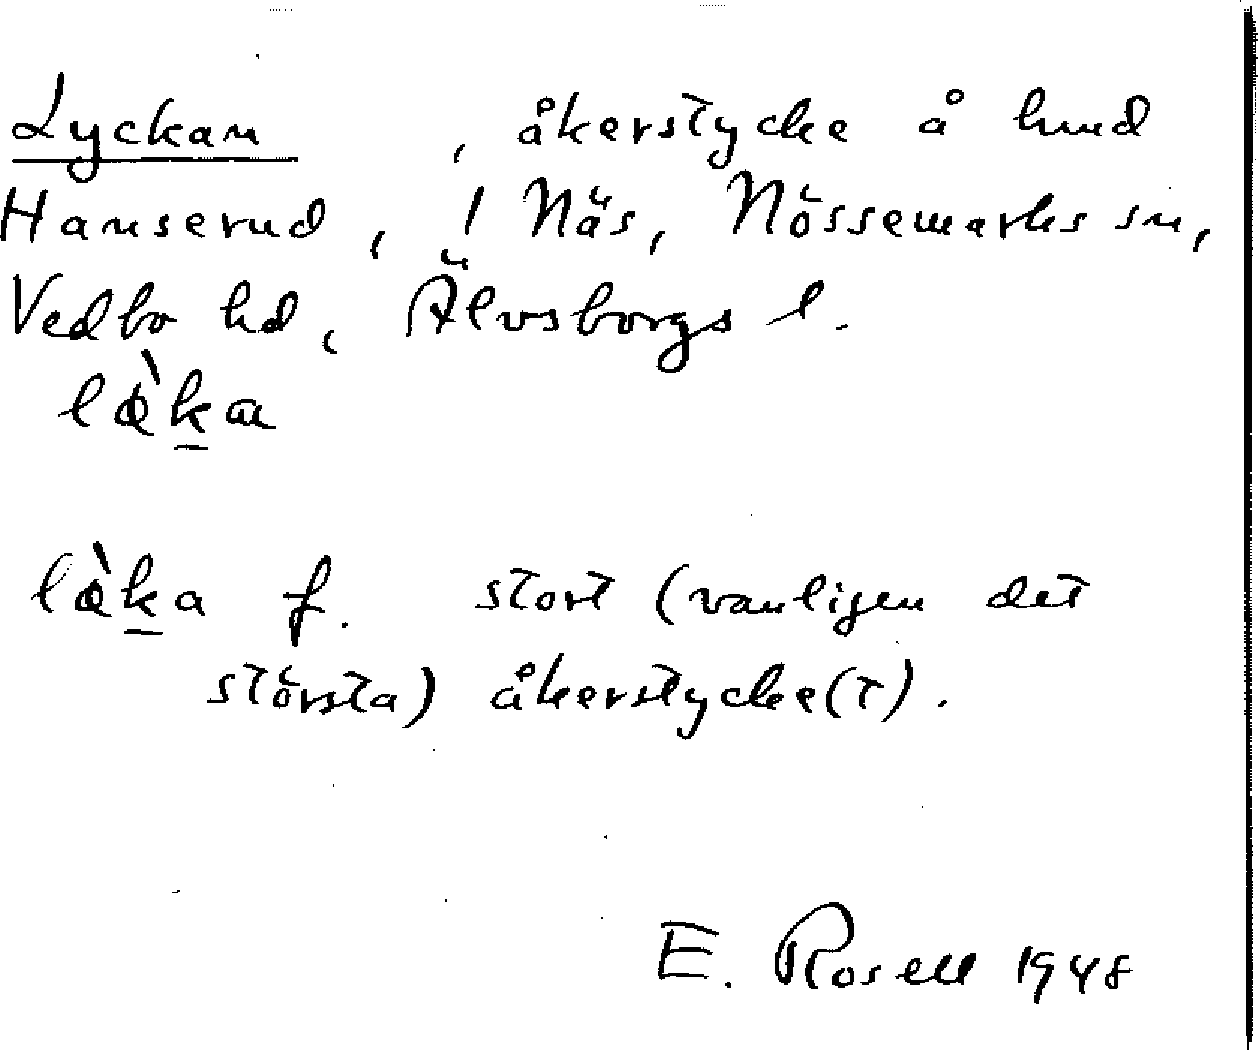 Lyckan , åkerstycke å hmd
Hanserud, 1 Näs, Nössemarks sn,
Vedbo hd, Älvsborgs l.
stort (vanligen det
största) åkerstycke(t).
E. Rosell 1948